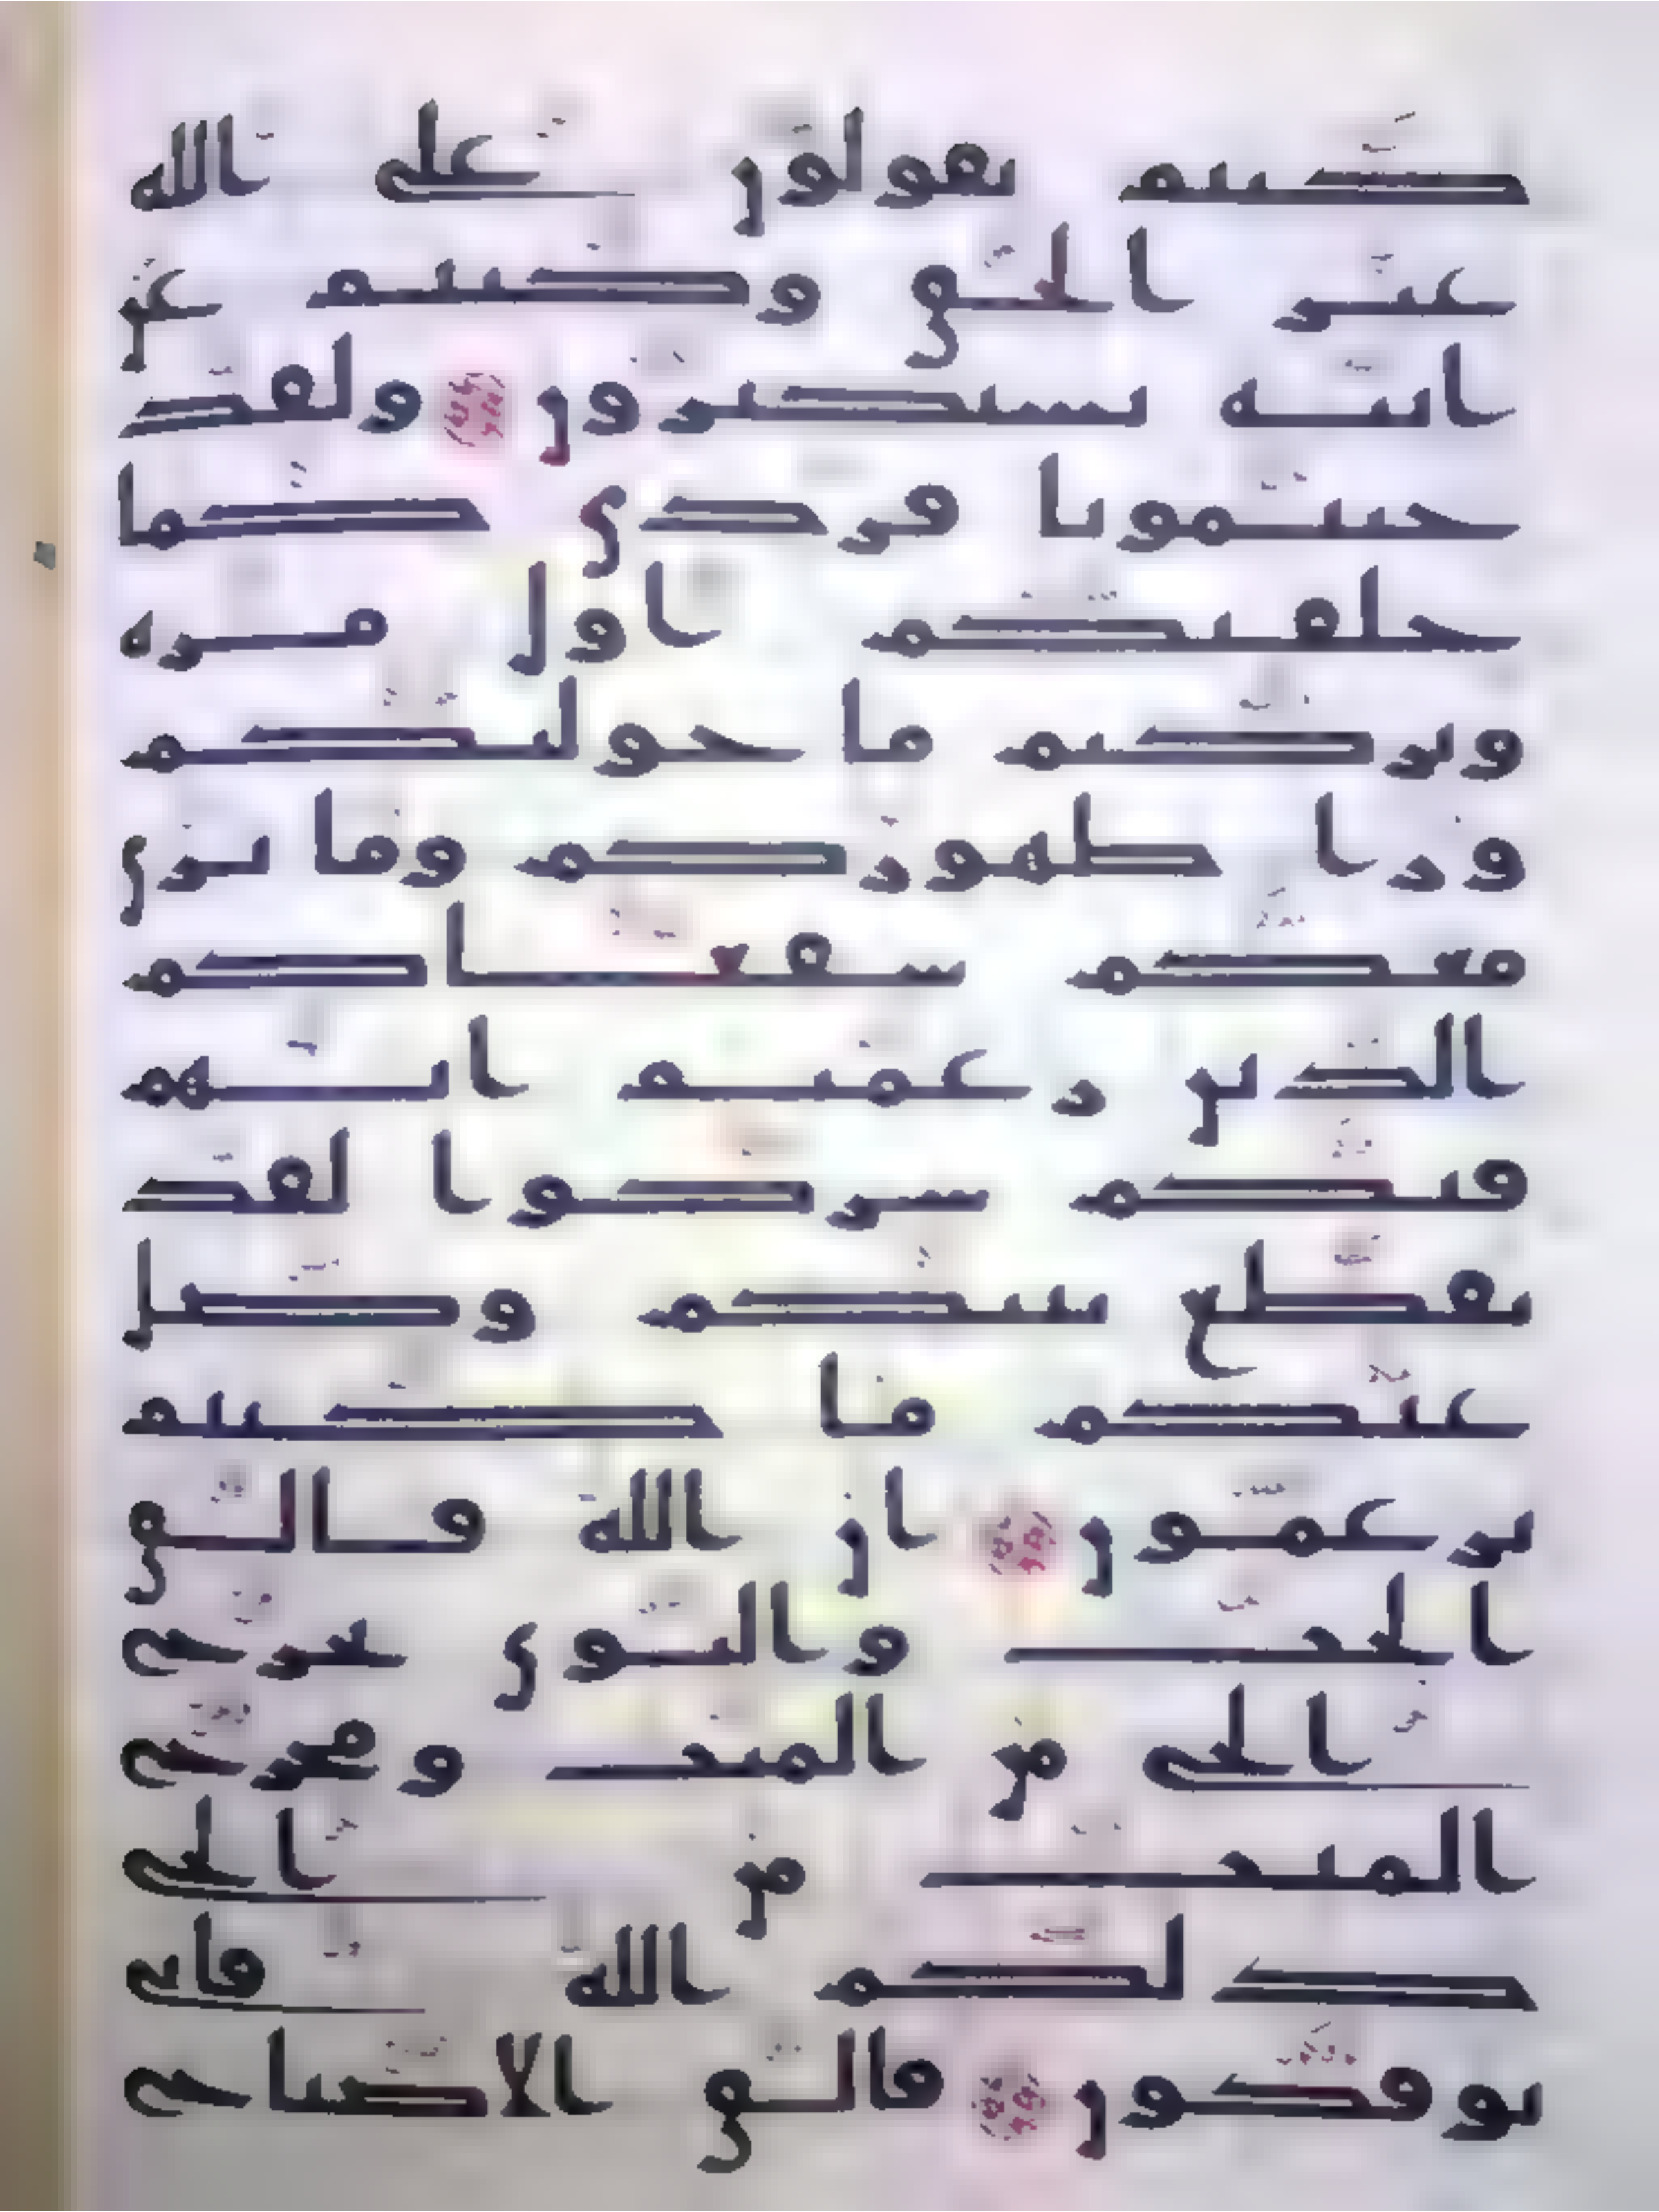 كنتم تقولون على الله
غير الحق وكنتم عن
ايته تستكبرون ولقد
جئتمونا فردى كما
خلقنكم اول مره
وتركتم ما خولنكم
ورا ظهوركم وما نرى
معكم شفعاكم
الذين زعمتم انهم
فيكم شركوا لقد
تقطع بينكم وضل
عنكم ما كنتم
تزعمون ان الله فالق
الحب والنوى يخرج
الحى من الميت ومخرج
الميت من الحى
ذلكم الله فانى
توفكون فالق الاصباح